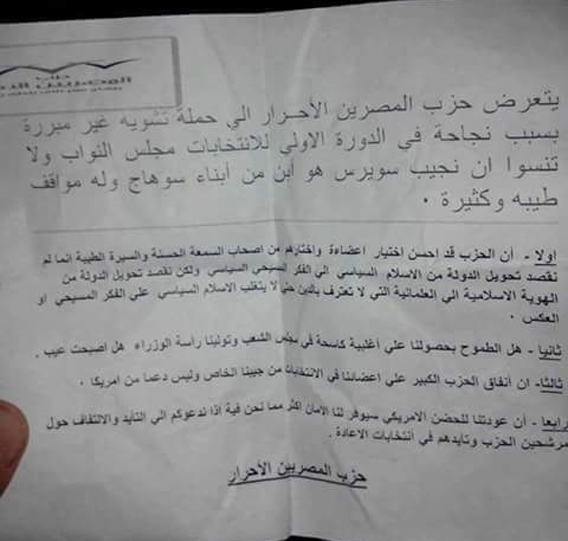 حزب
المصريين
يتعرض حزب المصرين الأحرار الي حملة تشويه غير مبررة
بسبب نجاحة في الدورة الاولي للانتخابات مجلس النواب ولا
تنسوا ان نجيب سويرس هو أبن من أبناء سوهاج وله مواقف
طيبه وكثيرة .
اولا - أن الحزب قد احسن اختيار اعضاءة واختارهم من اصحاب السمعة الحسنة والسيرة الطيبة انما لم
نقصد تحويل الدولة من الاسلام السياسي الي الفكر المسيحي السياسي ولكن نقصد تحويل الدولة من
الهوية الاسلامية الي العلمانية التي لا تعترف بالدين حتي لا يتغلب الاسلام السياسي علي الفكر المسيحي او
العكس .
ثانيا - هل الطموح بحصولنا علي أغلبية كاسحة في مجلس الشعب وتولينا رأسة الوزراء هل اصبحت عيب .
ثالثا- ان أنفاق الحزب الكبير علي اعضائنا في الانتخابات من جيبنا الخاص وليس دعما من امريكا .
رابعا - أن عودتنا للحضن الامريكي سيوفر لنا الأمان اكثر مما نحن فية إذا ندعوكم الي التأيد والالتفاف حول
مرشحين الحزب وتايدهم في أنتخابات الاعادة .
حزب المصريين الأحرار